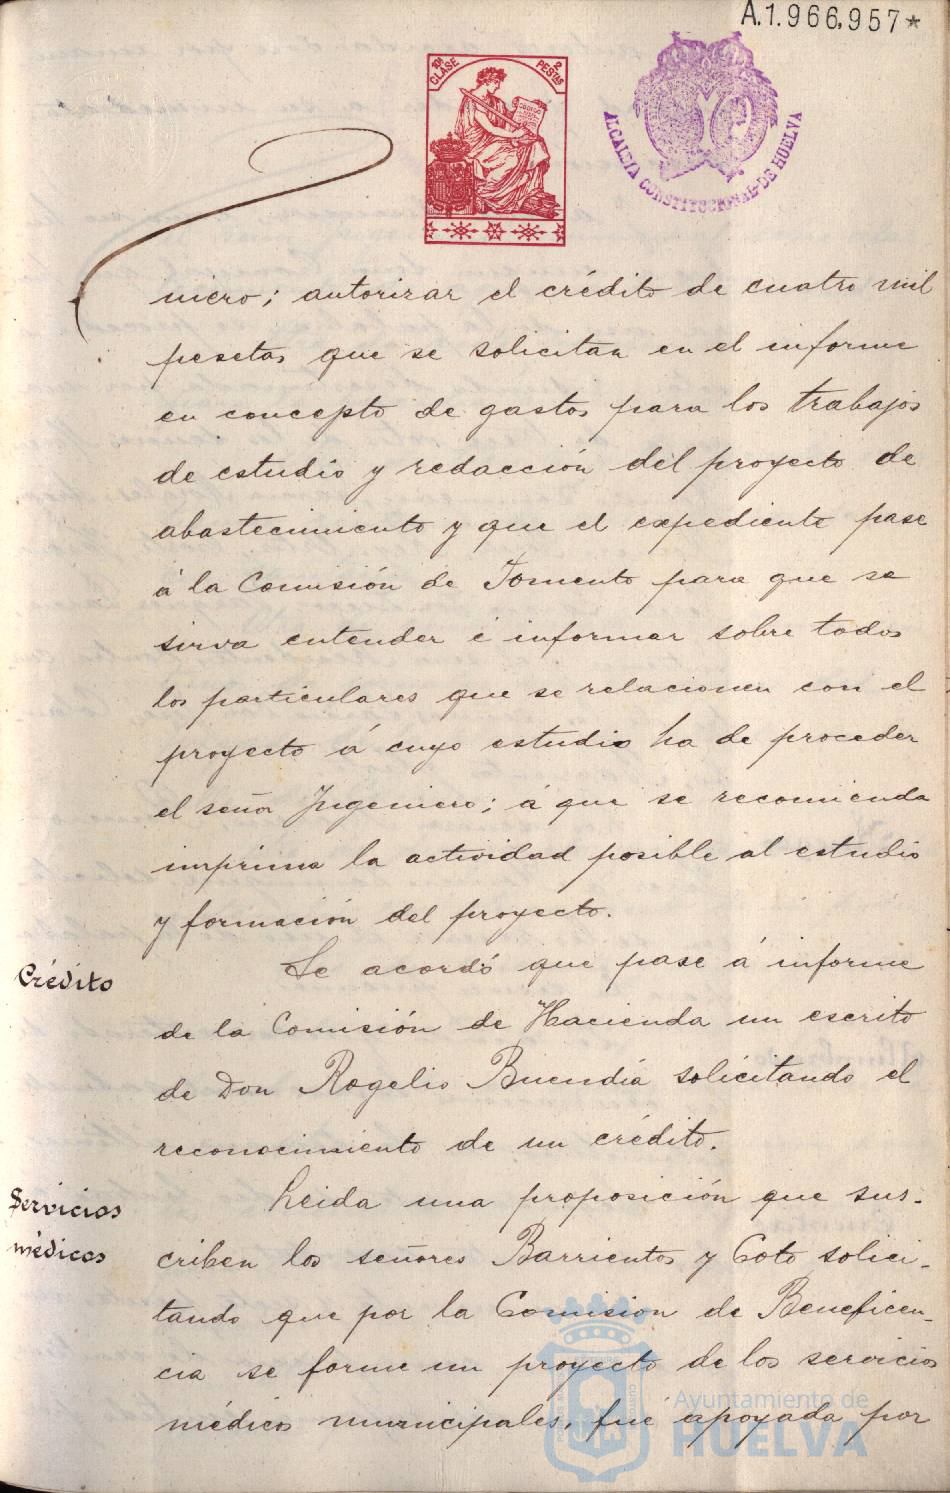 A.1.966,957*
10ª CLASE
2 PESTAS
ALCALDIA CONSTITUCIONAL-DE HUELVA
niero; autorizar el crédito de cuatro mil
pesetas que se solicitan en el informe
en concepto de gastos para los trabajos
de estudio y redacción del proyecto de
abastecimiento y que el expediente pase
á la Comisión de Fomento para que se
sirva entender é informar sobre todos
los particulares que se relacionen con el
proyecto á cuyo estudio ha de proceder
el señor Ingeniero; á que se recomienda
imprima la actividad posible al estudio
y formación del proyecto.
Crédito
Se acordó que pase á informe
de la Comisión de Hacienda un escrito
de Don Rogelio Buendía solicitando el
reconocimiento de un crédito.
Servicios
médicos
Leida una proposición que sus-
criben los señores Barrientos y Coto solici-
tando que por la Comisión de Beneficen-
cia se forme un proyecto de los servicios
médicos municipales, fué apoyada por
Ayuntamiento de
HUELVA